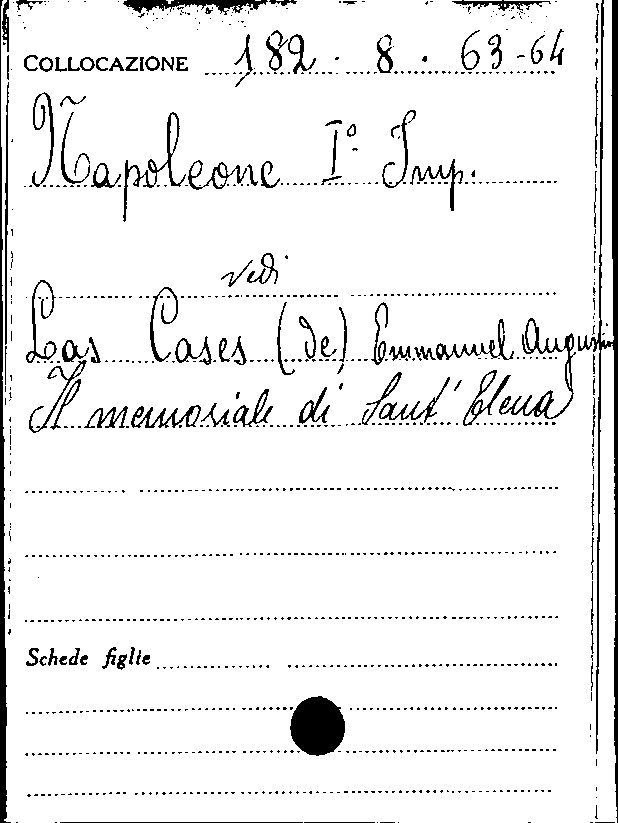 COLLOCAZIONE 182 . 8 . 63-64
Napoleone I° Imp.
vedi
Las Cases (de) Emmanuel Augustin
Il memoriale di Sant' Elena
Schede figlie